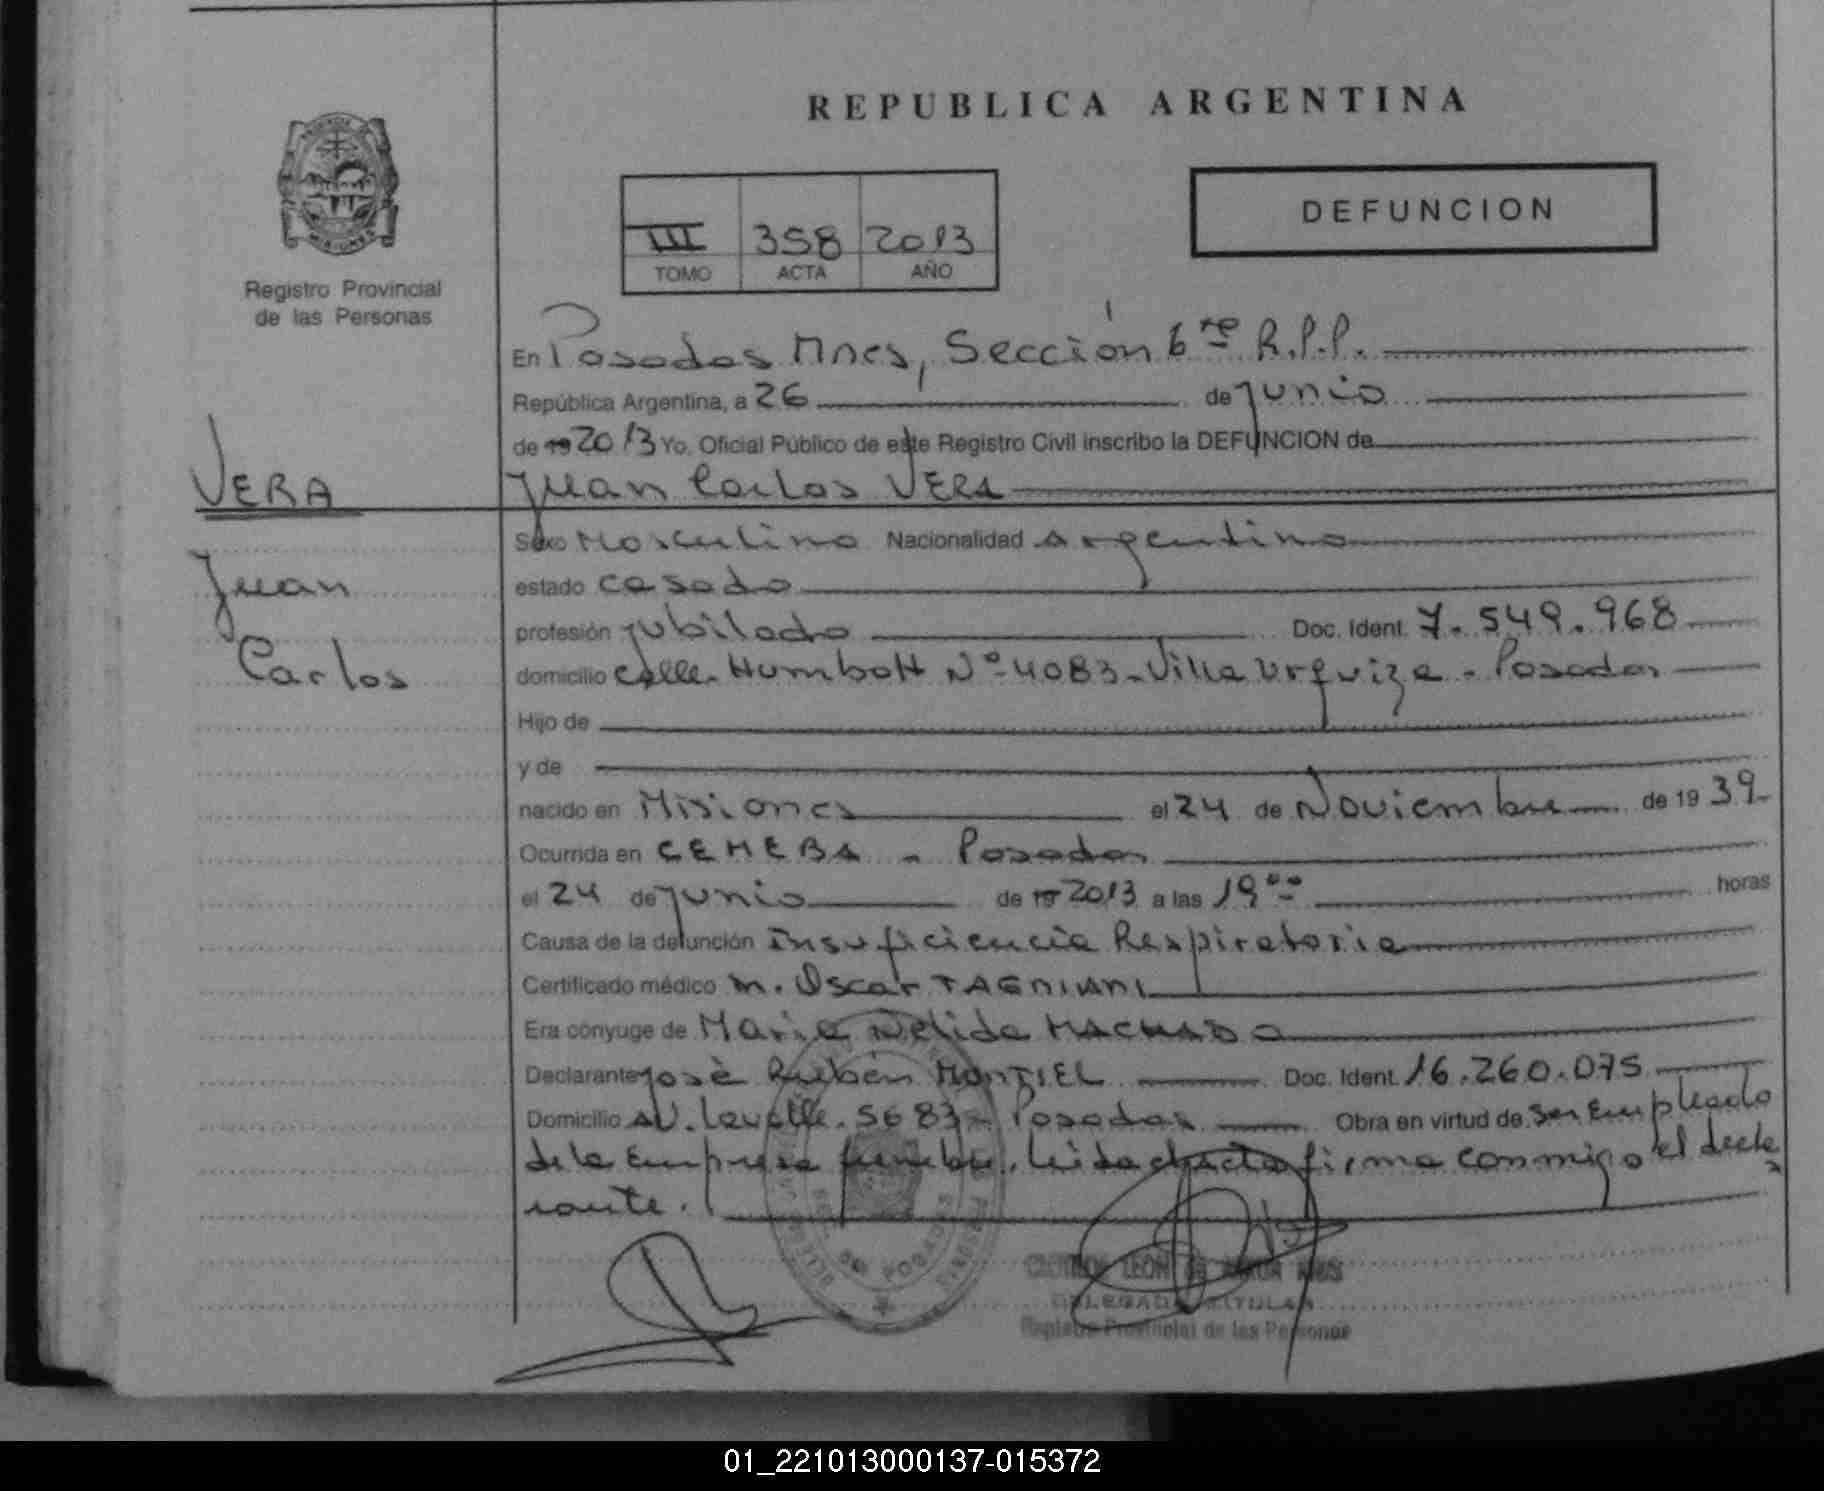 REPUBLICA ARGENTINA
DEFUNCION
III 358 2013
TOMO ACTA AÑO
Registro Provincial
de las Personas
En Posadas Mnes, Sección 6ta R.P.P.
República Argentina, a 26 de junio
de 19 2013 Yo, Oficial Público de este Registro Civil inscribo la DEFUNCION de
VERA
Juan Carlos VERA
Sexo Masculino Nacionalidad Argentino
Juan
estado casado
profesión jubilado Doc. Ident. 7.549.968
Carlos
domicilio calle Humbolt Nº 4083 - Villa Urquiza - Posadas
Hijo de
y de
nacido en Misiones el 24 de Noviembre de 1939-
Ocurrida en CEMEBA - Posadas
el 24 de junio de 19 2013 a las 19 00 horas
Causa de la defunción Insuficiencia Respiratoria
Certificado médico M. Oscar TAGNIANI
Era cónyuge de Maria Nelida MACHADO
Declarante José Rubén MONTIEL Doc. Ident. 16.260.075
Domicilio AV. Lavalle. 5683 - Posadas Obra en virtud de ser Empleado
de la Empresa fúnebre. Leida el acta firma conmigo el decla
rante.
LEON DE
DELEGADA TITULAR
Registro Provincial de las Personas
01_221013000137-015372